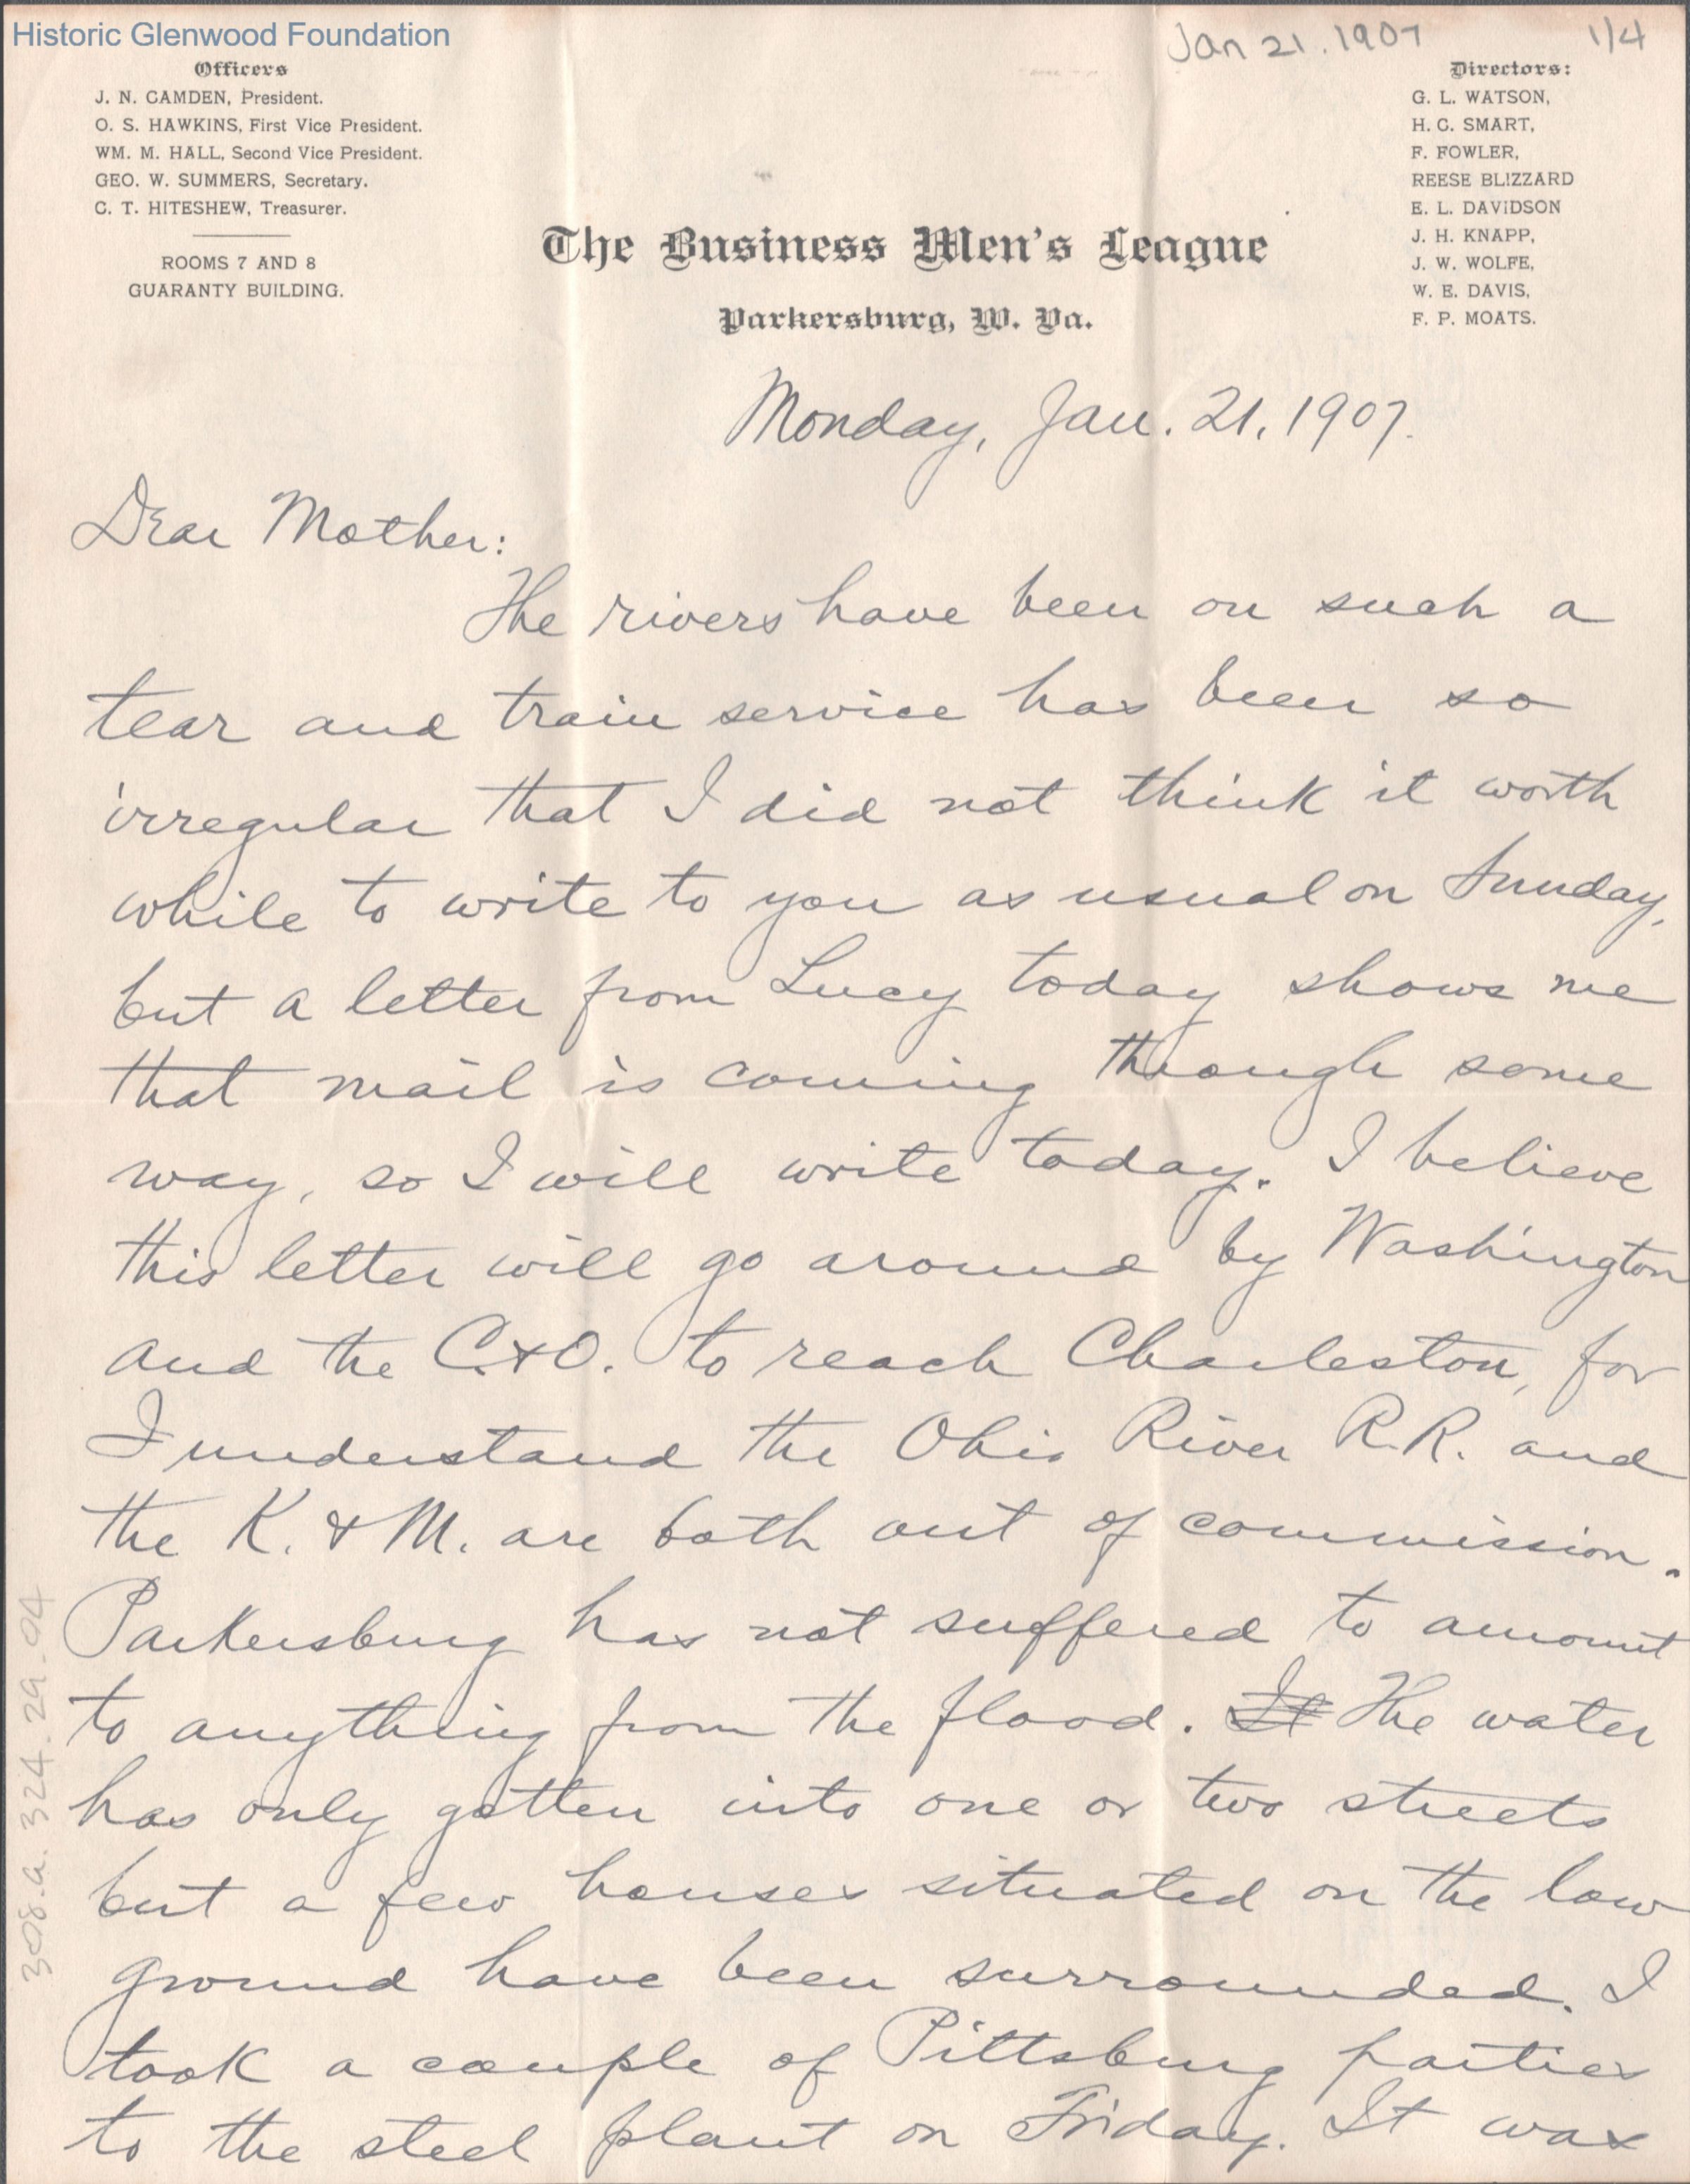 Historic Glenwood Foundation
Jan 21. 1907 1/4
Officers
J. N. CAMDEN, President.
O. S. HAWKINS, First Vice President.
WM. M. HALL, Second Vice President.
GEO. W. SUMMERS, Secretary.
C. T. HITESHEW, Treasurer.
ROOMS 7 AND 8
GUARANTY BUILDING.
Directors:
G. L. WATSON,
H. C. SMART,
F. FOWLER,
REESE BLIZZARD
E. L. DAVIDSON
J. H. KNAPP,
J. W. WOLFE,
W. E. DAVIS,
F. P. MOATS.
The Business Men's League
Parkersburg, W. Va.
Monday, Jan. 21, 1907.
Dear Mother:
The rivers have been on such a
tear and train service has been so
irregular that I did not think it worth
while to write to you as usual on Sunday,
but a letter from Lucy today shows me
that mail is coming through some
way, so I will write today. I believe
this letter will go around by Washington
and the C.&O. to reach Charleston, for
I understand the Ohio River R.R. and
the K. & M. are both out of commission.
Parkersburg has not suffered to amount
to anything from the flood. It The water
has only gotten into one or two streets
but a few houses situated on the low
ground have been surrounded. I
took a couple of Pittsburg parties
to the steel plant on Friday. It was
308.a.324.29.04